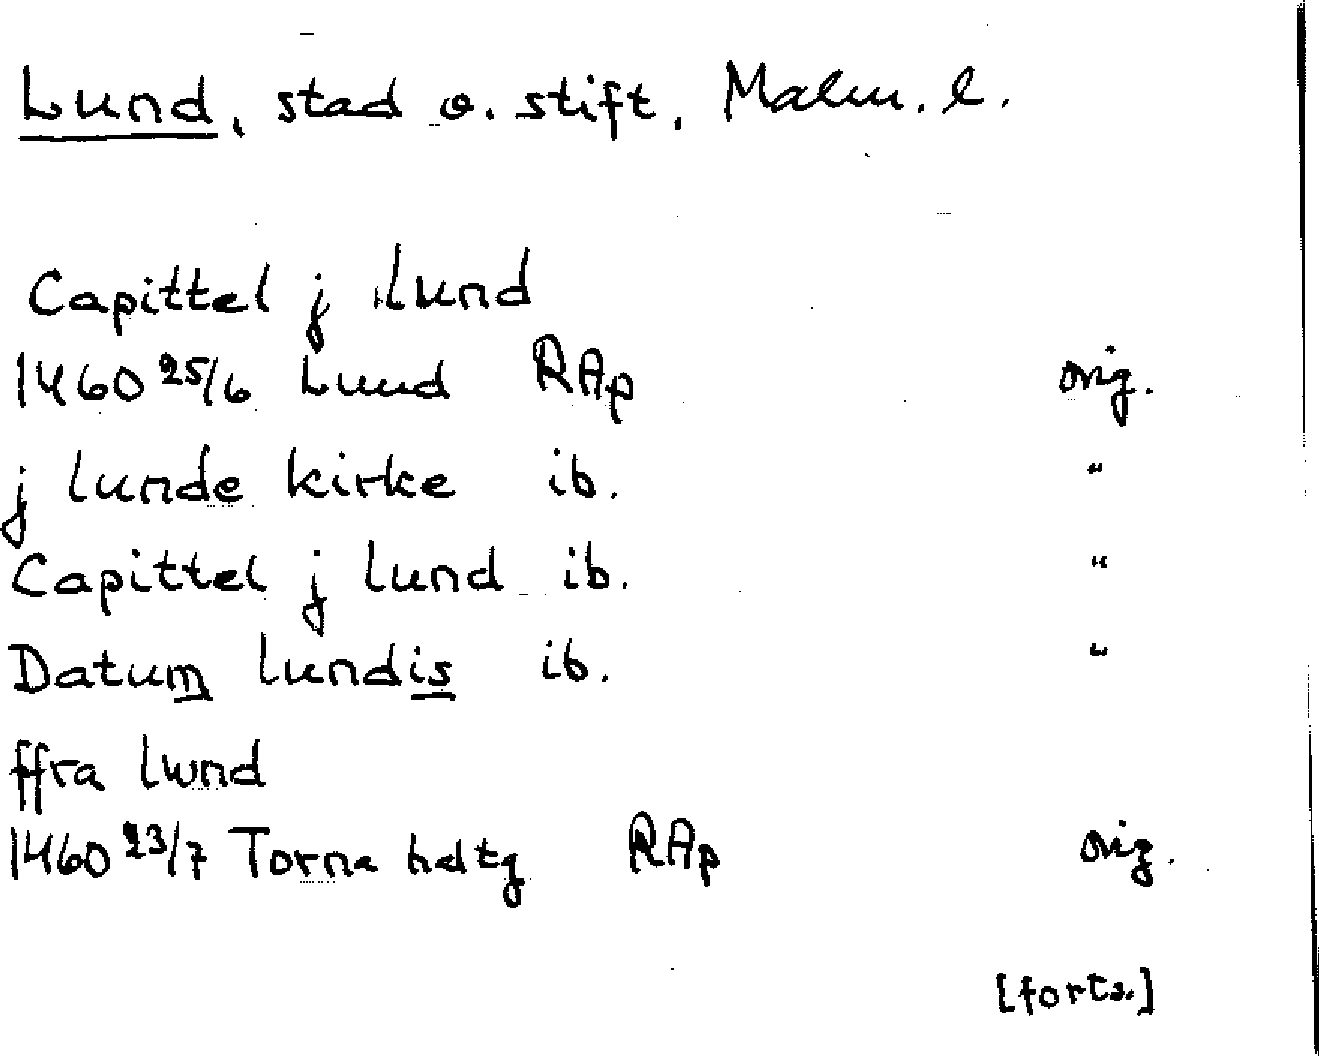 Lund, stad o. stift, Malm. l.
Capittel j Lund
1460 25/6 Lund RAp orig.
j lunde kirke ib. "
Capittel j lund ib. "
Datum lundis ib. "
ffra lund
1460 23/7 Torna hdtg RAp orig.
[forts.]